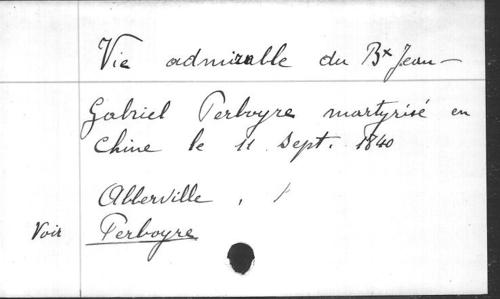 Vie admirable du Bx Jean-
Gabriel Perboyre martyrisé en
Chine le 11 Sept. 1840
Abberville, /
Voir Perboyre